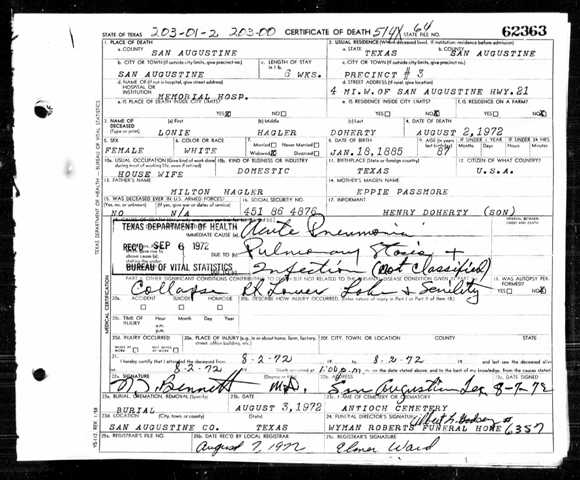 STATE OF TEXAS 203-01-2 203-00 CERTIFICATE OF DEATH 514X 64 STATE FILE NO. 62363
TEXAS DEPARTMENT OF HEALTH — BUREAU OF VITAL STATISTICS
1. PLACE OF DEATH 2. USUAL RESIDENCE (Where deceased lived. If institution: residence before admission)
a. COUNTY SAN AUGUSTINE a. STATE TEXAS b. COUNTY SAN AUGUSTINE
b. CITY OR TOWN (If outside city limits, give precinct no.) c. LENGTH OF STAY c. CITY OR TOWN (If outside city limits, give precinct no.)
SAN AUGUSTINE 6 WKS. PRECINCT # 3
d. NAME OF (If not in hospital, give street address) HOSPITAL OR INSTITUTION d. STREET ADDRESS (If rural, give location)
MEMORIAL HOSP. 4 MI.W.OF SAN AUGUSTINE HWY.21
e. IS PLACE OF DEATH INSIDE CITY LIMITS? e. IS RESIDENCE INSIDE CITY LIMITS? f. IS RESIDENCE ON A FARM?
YES NO YES NO YES NO
3. NAME OF DECEASED (Type or print) (a) First (b) Middle (c) Last 4. DATE OF DEATH
LONIE HAGLER DOHERTY AUGUST 2,1972
5. SEX 6. COLOR OR RACE 7. Married Never Married Widowed Divorced 8. DATE OF BIRTH 9. AGE IF UNDER 1 YEAR IF UNDER 24 HRS.
FEMALE WHITE JAN.18,1885 87
10a. USUAL OCCUPATION 10b. KIND OF BUSINESS OR INDUSTRY 11. BIRTHPLACE (State or foreign country) 12. CITIZEN OF WHAT COUNTRY?
HOUSE WIFE DOMESTIC TEXAS U.S.A.
13. FATHER'S NAME 14. MOTHER'S MAIDEN NAME
MILTON HAGLER EPPIE PASSMORE
15. WAS DECEASED EVER IN U.S. ARMED FORCES? 16. SOCIAL SECURITY NO. 17. INFORMANT
NO N/A 451 86 4876 HENRY DOHERTY (SON)
TEXAS DEPARTMENT OF HEALTH
REC'D SEP 6 1972
BUREAU OF VITAL STATISTICS
IMMEDIATE CAUSE (a) Acute Pneumonia
DUE TO (b) Pulmonary Stasis +
Infection (not classified)
19. WAS AUTOPSY PERFORMED? YES NO
Collapse Rt Lower Lobe & Senility
MEDICAL CERTIFICATION
20a. ACCIDENT SUICIDE HOMICIDE 20b. DESCRIBE HOW INJURY OCCURRED.
20c. TIME OF INJURY Hour Month Day Year
a.m.
p.m.
20d. INJURY OCCURRED 20e. PLACE OF INJURY (e.g., in or about home, farm, factory, street, office building, etc.) 20f. CITY, TOWN, OR LOCATION COUNTY STATE
21. I hereby certify that I attended the deceased from 8-2-72 8-2-72
8-2-72 1:00 p.m.
22a. SIGNATURE 22c. DATE SIGNED
Bennett M.D. San Augustine Tex 8-7-72
23a. BURIAL, CREMATION, REMOVAL 23b. DATE 23c. NAME OF CEMETERY OR CREMATORY
BURIAL AUGUST 3,1972 ANTIOCH CEMETERY
23d. LOCATION (City, town, or county) (State) 24. FUNERAL DIRECTOR'S SIGNATURE
SAN AUGUSTINE CO. TEXAS WYMAN ROBERTS FUNERAL HOME # 6357
25a. REGISTRAR'S FILE NO. 25b. DATE REC'D BY LOCAL REGISTRAR 25c. REGISTRAR'S SIGNATURE
August 7, 1972 Elmer Ward